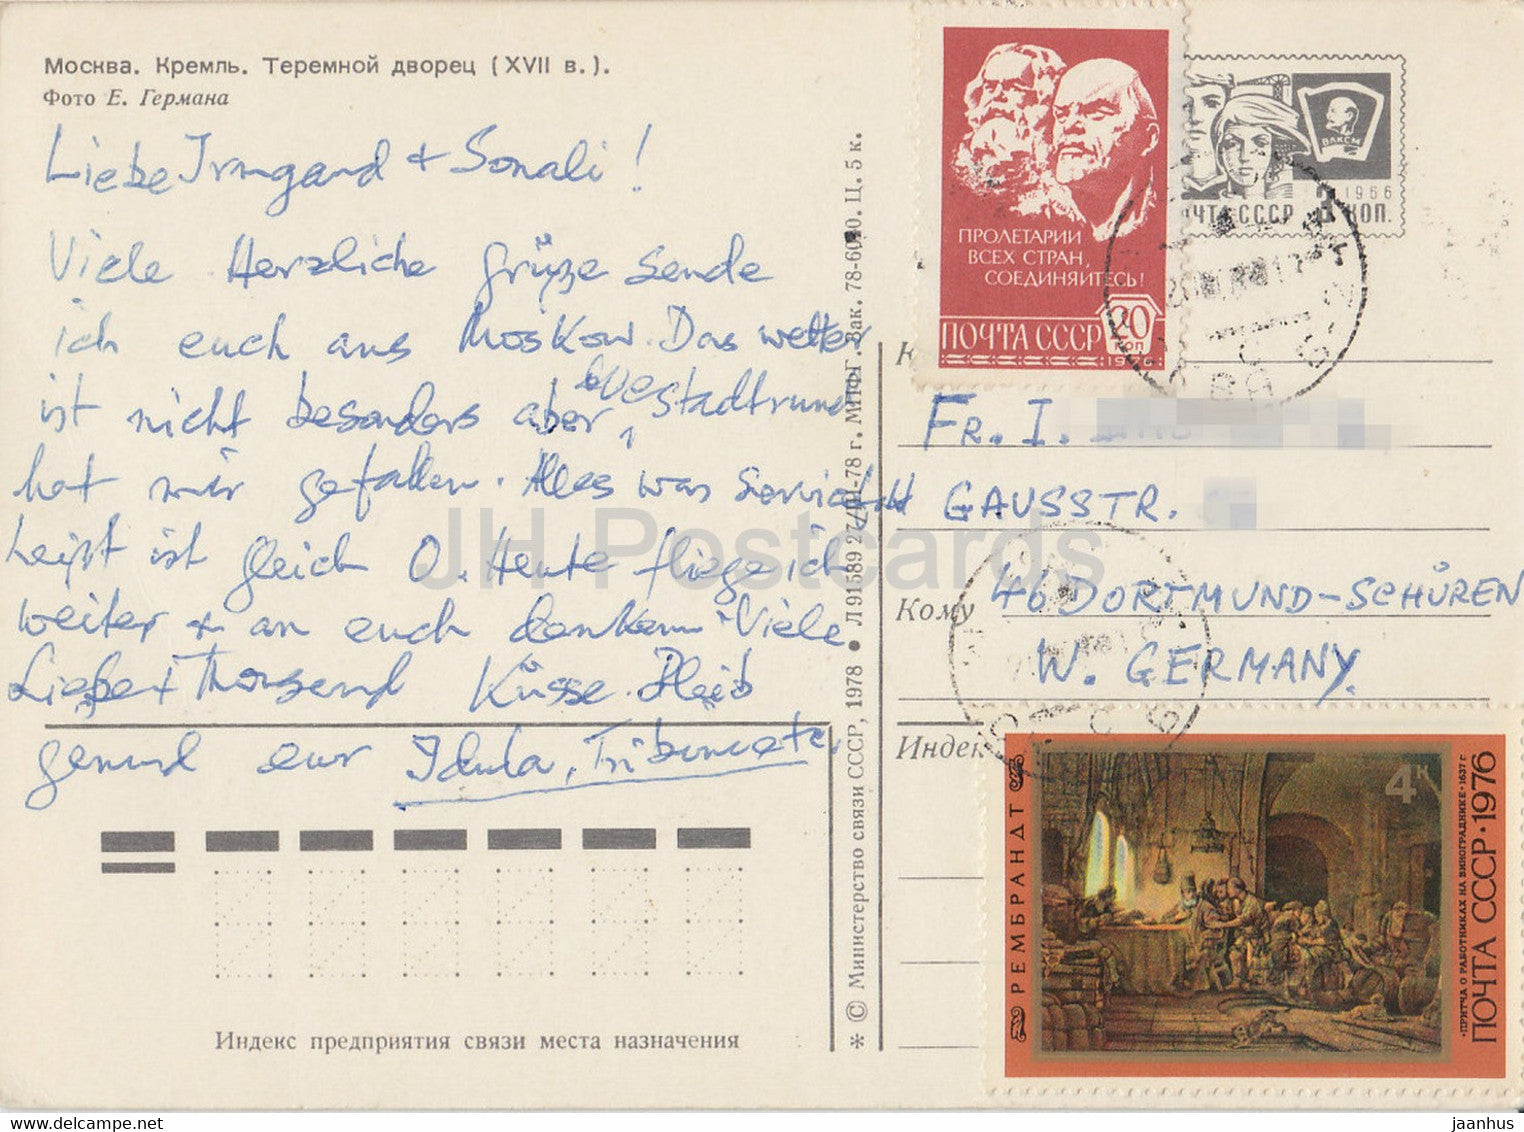 Москва. Кремль. Теремной дворец (XVII в.).
Фото Е. Германа
Liebe Irmgard + Sonali!
Viele Herzliche grüße sende
ich euch aus Moskow. Das wetter
ist nicht besonders aber die Stadtrund
hat mir gefallen. Alles was Service
heißt ist gleich 0. Heute fliege ich
weiter + an euch denken Viele
Liebe + Thousend Küsse. Bleib
gesund eur
Индекс предприятия связи места назначения
* © Министерство связи СССР, 1978 ● Л 91589 27/III-78 г. МПФГ. Зак. 78-6040. Ц. 5 к.
ПРОЛЕТАРИИ
ВСЕХ СТРАН,
СОЕДИНЯЙТЕСЬ!
20
КОП
ПОЧТА СССР
1976
ВЛКСМ
1966
ПОЧТА СССР КОП.
К
FR. I.
GAUSSTR.
Кому 46 DORTMUND-SCHÜREN
W. GERMANY.
Индек
РЕМБРАНДТ
4к
•ПРИТЧА О РАБОТНИКАХ НА ВИНОГРАДНИКЕ•1637 г.
ПОЧТА СССР•1976
JH Postcards
www.delcampe.net
jaanhus